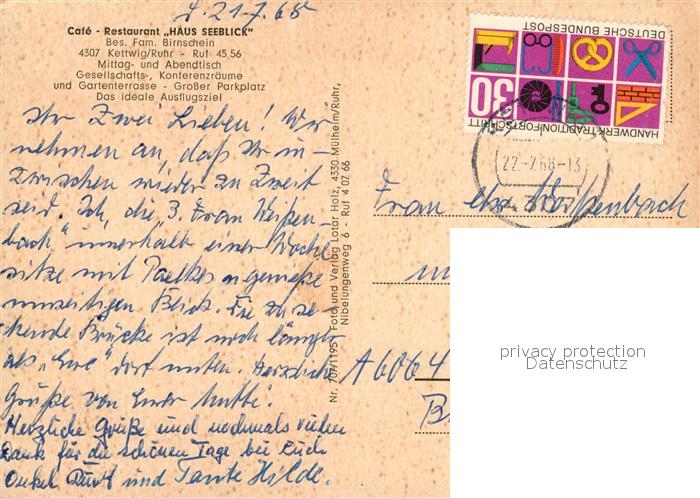 d. 21.7.68
Café - Restaurant „HAUS SEEBLICK"
Bes. Fam. Birnschein
4307 Kettwig/Ruhr - Ruf 45 56
Mittag- und Abendtisch
Gesellschafts-, Konferenzräume
und Gartenterrasse - Großer Parkplatz
Das ideale Ausflugsziel
Ihr Zwei Lieben! Wir
nehmen an, daß Ihr in-
zwischen wieder zu Zweit
seid. Ich, die „3. Frau Weißen-
bach" innerhalb einer Woche
sitze mit u. genieße
Blick. Die zu se-
hende Brücke ist noch länger
als „Eure" dort unten. Herzliche
Grüße von Eurer Mutti.
Herzliche Grüße und nochmals vielen
Dank für die schönen Tage bei Euch
Onkel Kurt und Tante Hilde.
Nr. 707/1195 Foto und Verlag Lotar Holz, 4330 Mülheim/Ruhr,
Nibelungenweg 6 - Ruf 4 07 66
DEUTSCHE BUNDESPOST
30
HANDWERK-TRADITION+FORTSCHRITT
22.-7.68-13
Frau Weißenbach
A 6064
privacy protection
Datenschutz